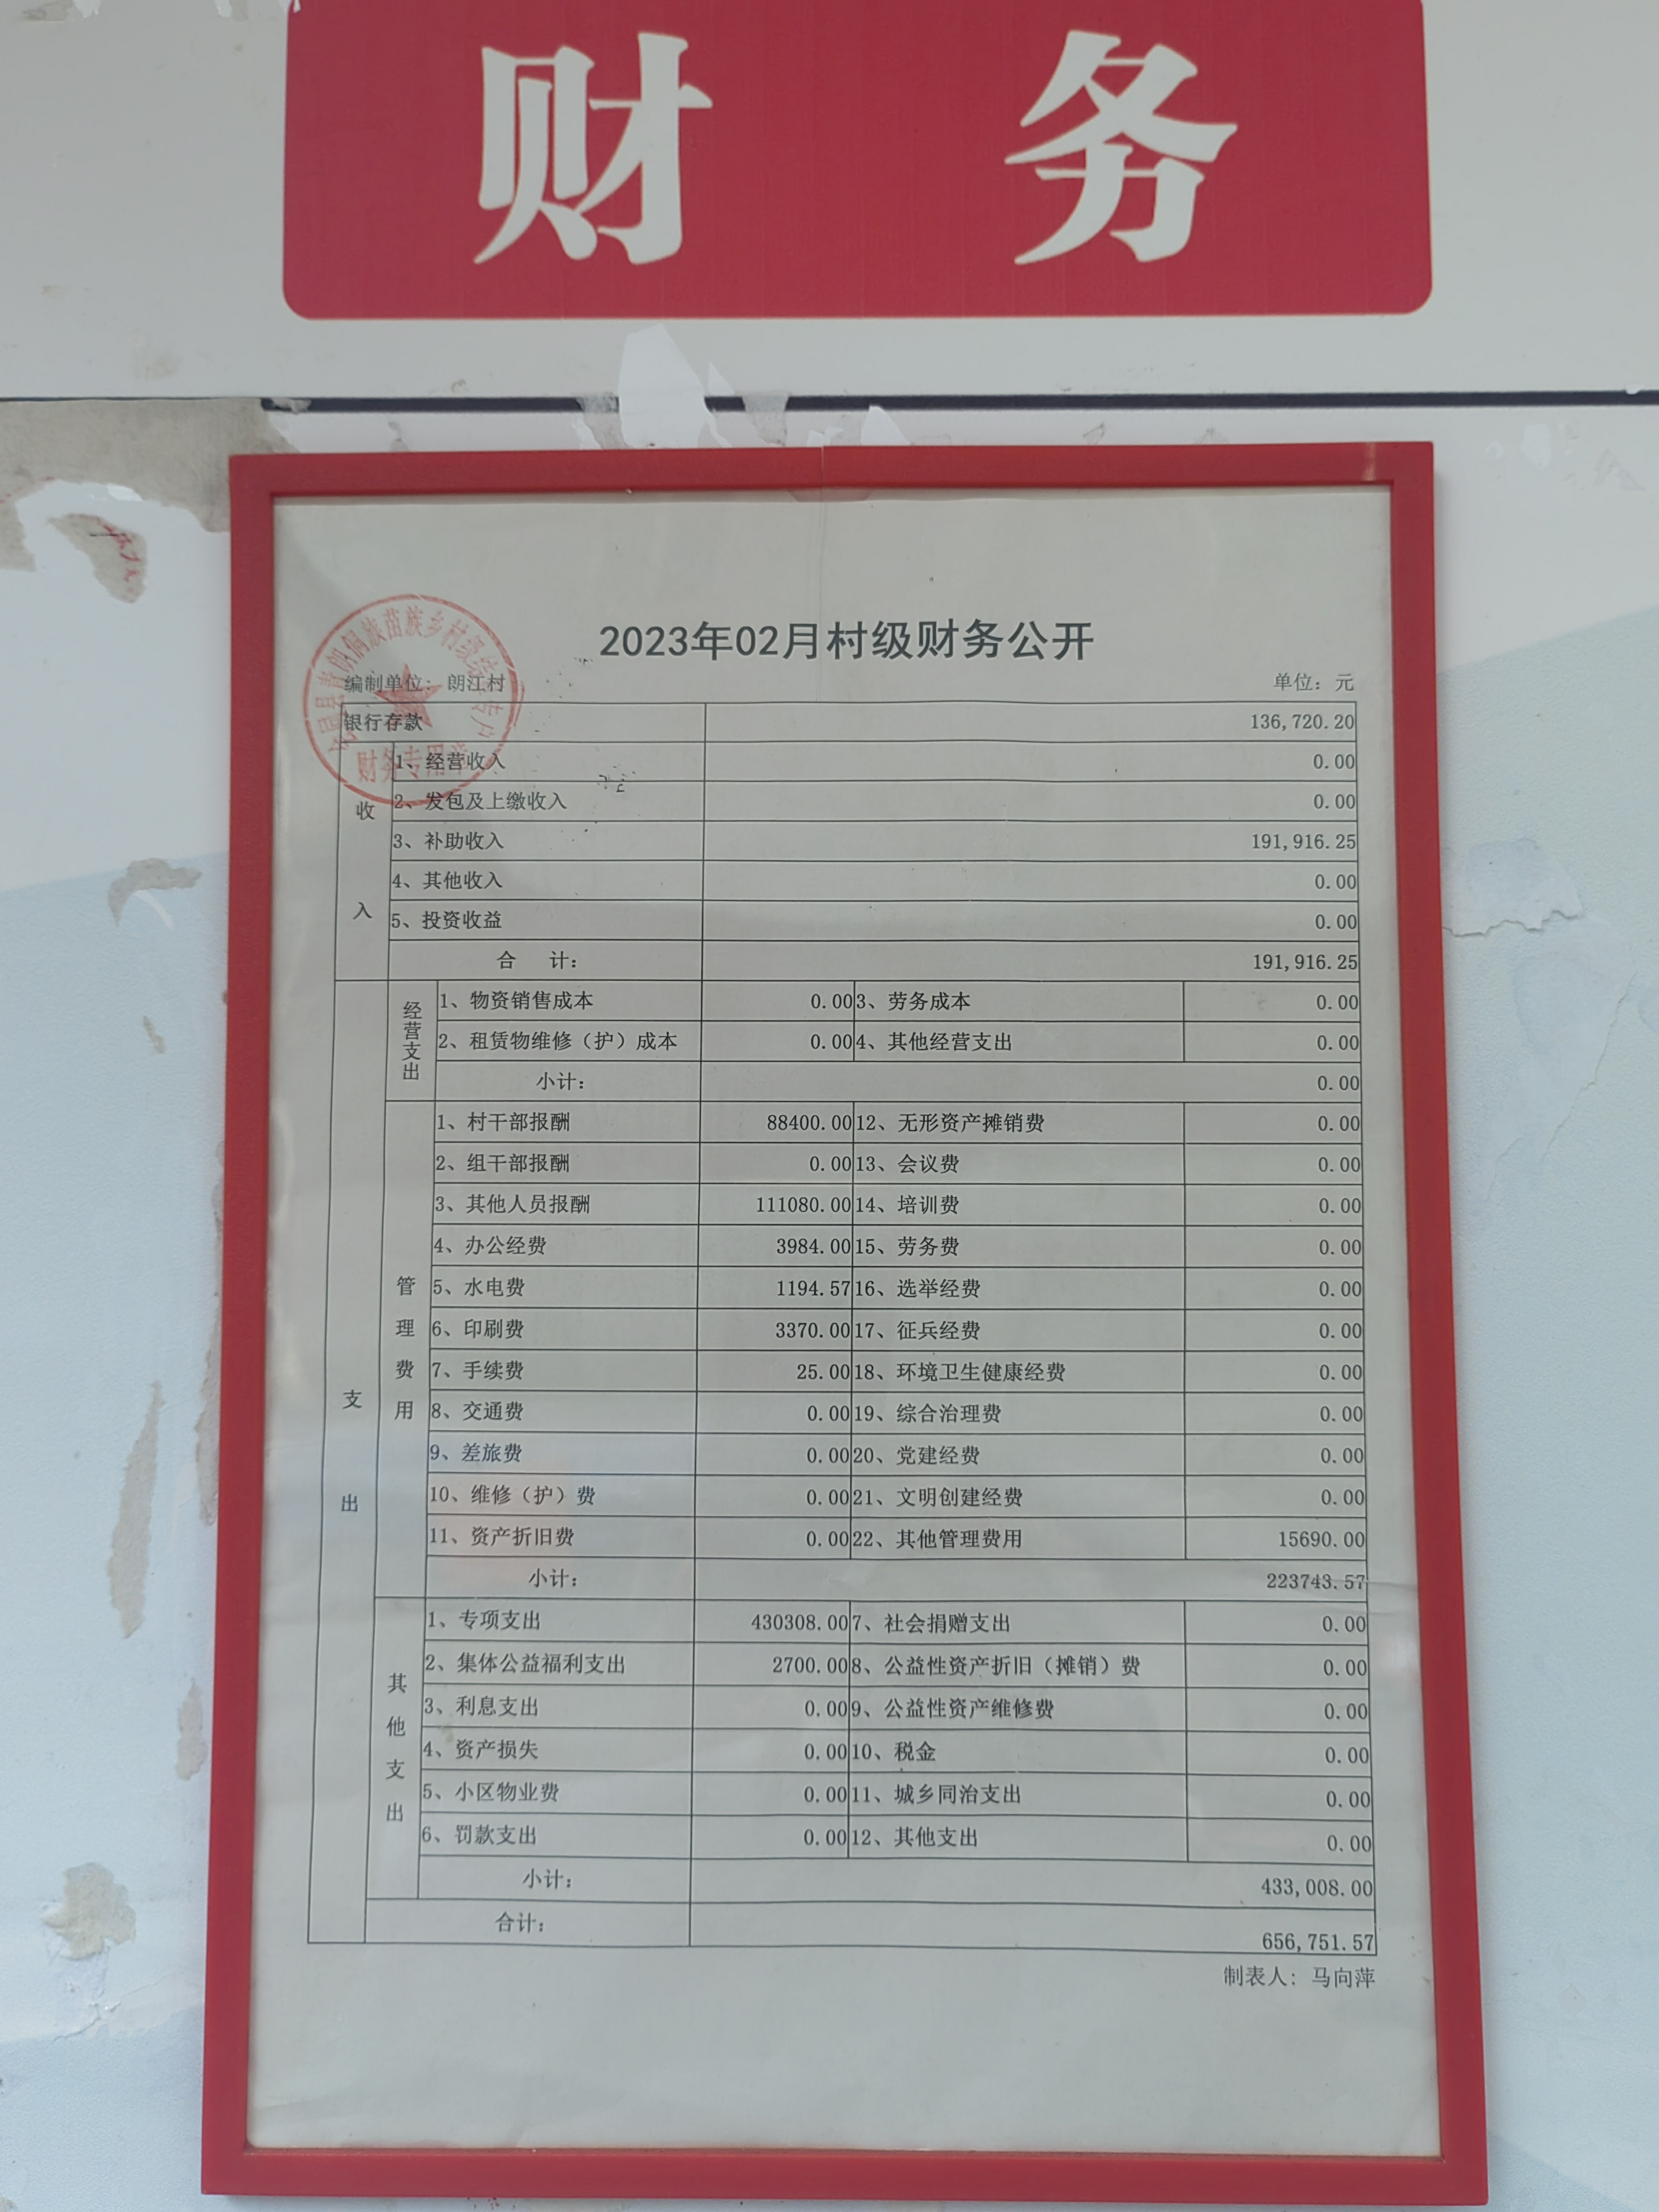 财 务
2023年02月村级财务公开
编制单位：朗江村 单位：元
银行存款 136,720.20
收入
1、经营收入 0.00
2、发包及上缴收入 0.00
3、补助收入 191,916.25
4、其他收入 0.00
5、投资收益 0.00
合 计： 191,916.25
支出
经营支出
1、物资销售成本 0.00 3、劳务成本 0.00
2、租赁物维修（护）成本 0.00 4、其他经营支出 0.00
小计： 0.00
管理费用
1、村干部报酬 88400.00 12、无形资产摊销费 0.00
2、组干部报酬 0.00 13、会议费 0.00
3、其他人员报酬 111080.00 14、培训费 0.00
4、办公经费 3984.00 15、劳务费 0.00
5、水电费 1194.57 16、选举经费 0.00
6、印刷费 3370.00 17、征兵经费 0.00
7、手续费 25.00 18、环境卫生健康经费 0.00
8、交通费 0.00 19、综合治理费 0.00
9、差旅费 0.00 20、党建经费 0.00
10、维修（护）费 0.00 21、文明创建经费 0.00
11、资产折旧费 0.00 22、其他管理费用 15690.00
小计： 223743.57
其他支出
1、专项支出 430308.00 7、社会捐赠支出 0.00
2、集体公益福利支出 2700.00 8、公益性资产折旧（摊销）费 0.00
3、利息支出 0.00 9、公益性资产维修费 0.00
4、资产损失 0.00 10、税金 0.00
5、小区物业费 0.00 11、城乡同治支出 0.00
6、罚款支出 0.00 12、其他支出 0.00
小计： 433,008.00
合计： 656,751.57
制表人：马向萍
青朗侗族苗族乡村级
财务专用章